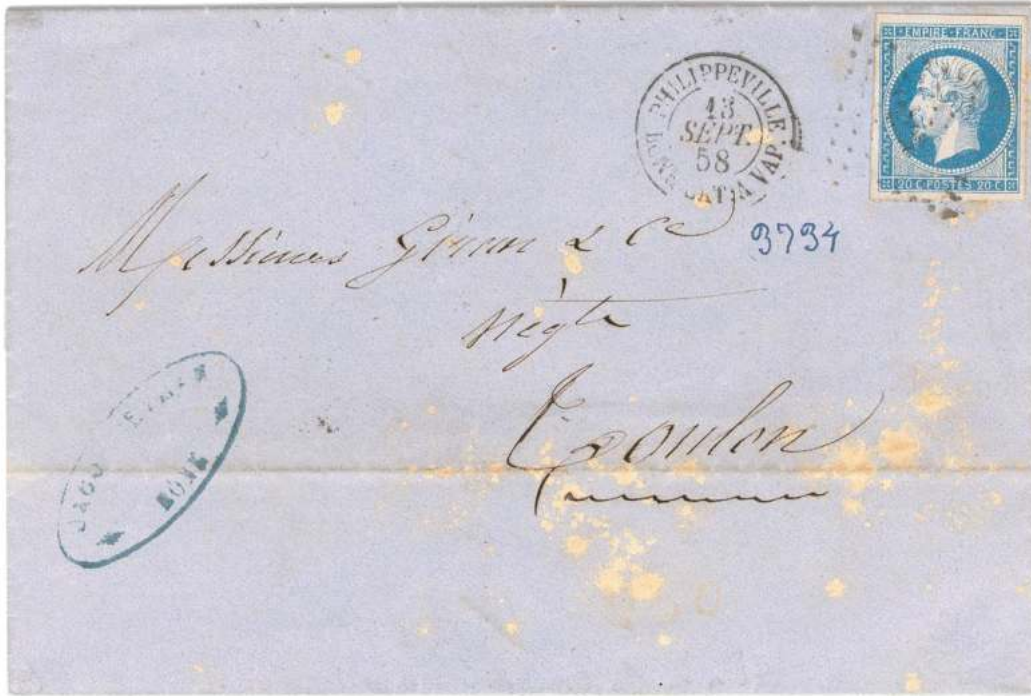 EMPIRE · FRANC ·
20 C POSTES 20 C
PHILIPPEVILLE
13
SEPT.
58
BONE BAT. A VAP.
3734
Messieurs & Cie
Négts
Toulon
BONE